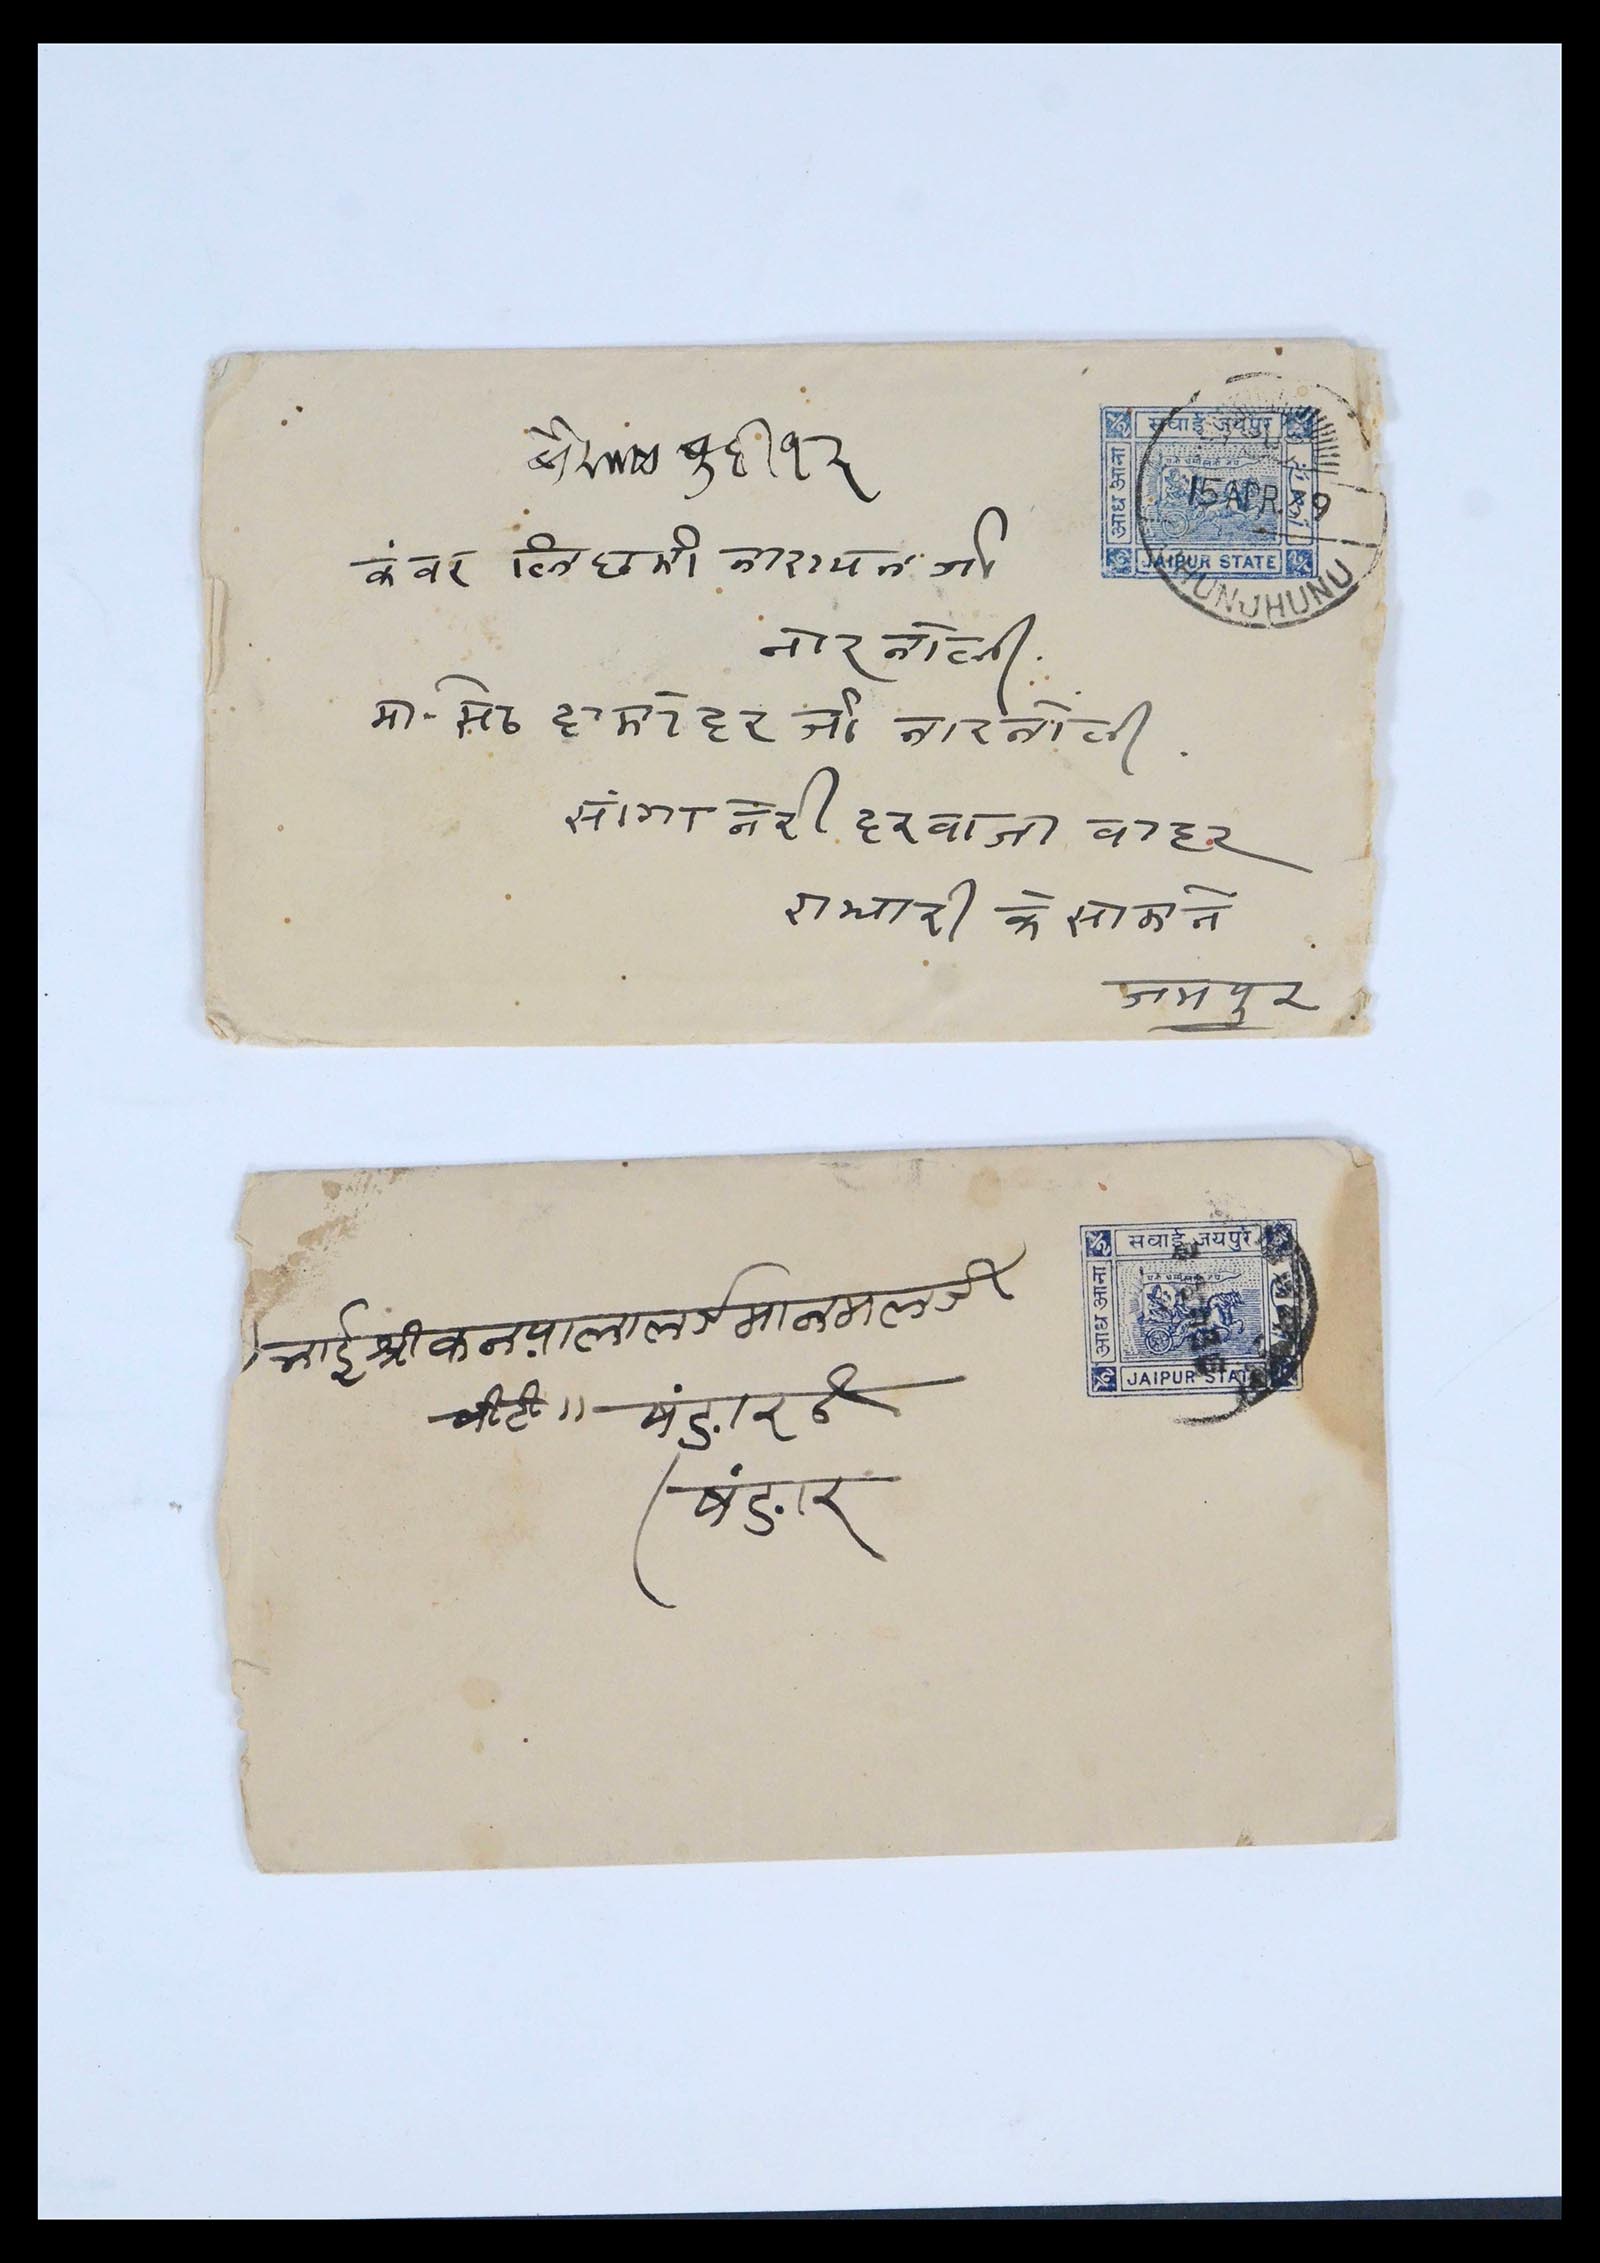 सवाई जयपुर
आध आना
JAIPUR STATE
15 APR. 9
HUNJHUNU
कंवर लिछमी नारायण जी
नारनोली.
मा- सेठ दामोदर जी नारनोली.
सांगानेरी दरवाजा बाहर
के सामने
जयपुर
सवाई जयपुर
आध आना
JAIPUR STATE
भाई श्री कनयालालजी मानमलजी
षंडार
(षंडार